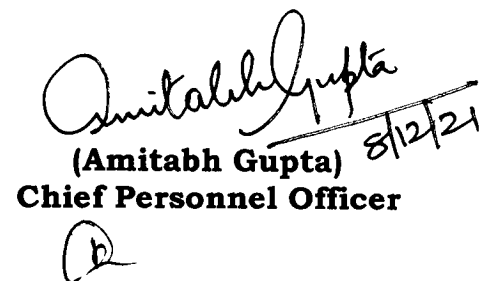 Amitabh Gupta
8/12/21
(Amitabh Gupta)
Chief Personnel Officer